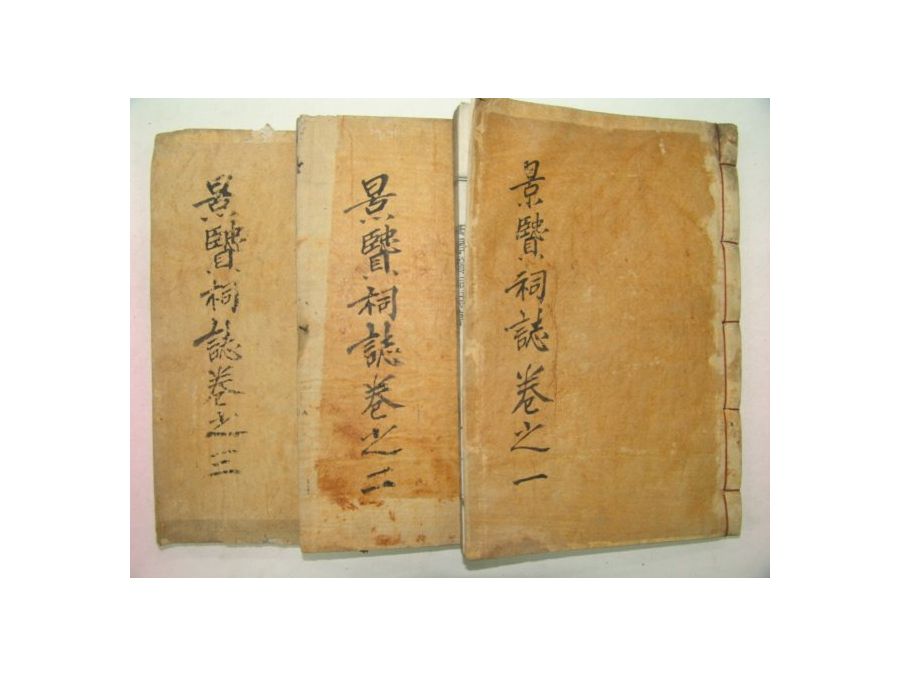 景賢祠誌 卷之一
景賢祠誌卷之二
景賢祠誌卷之三